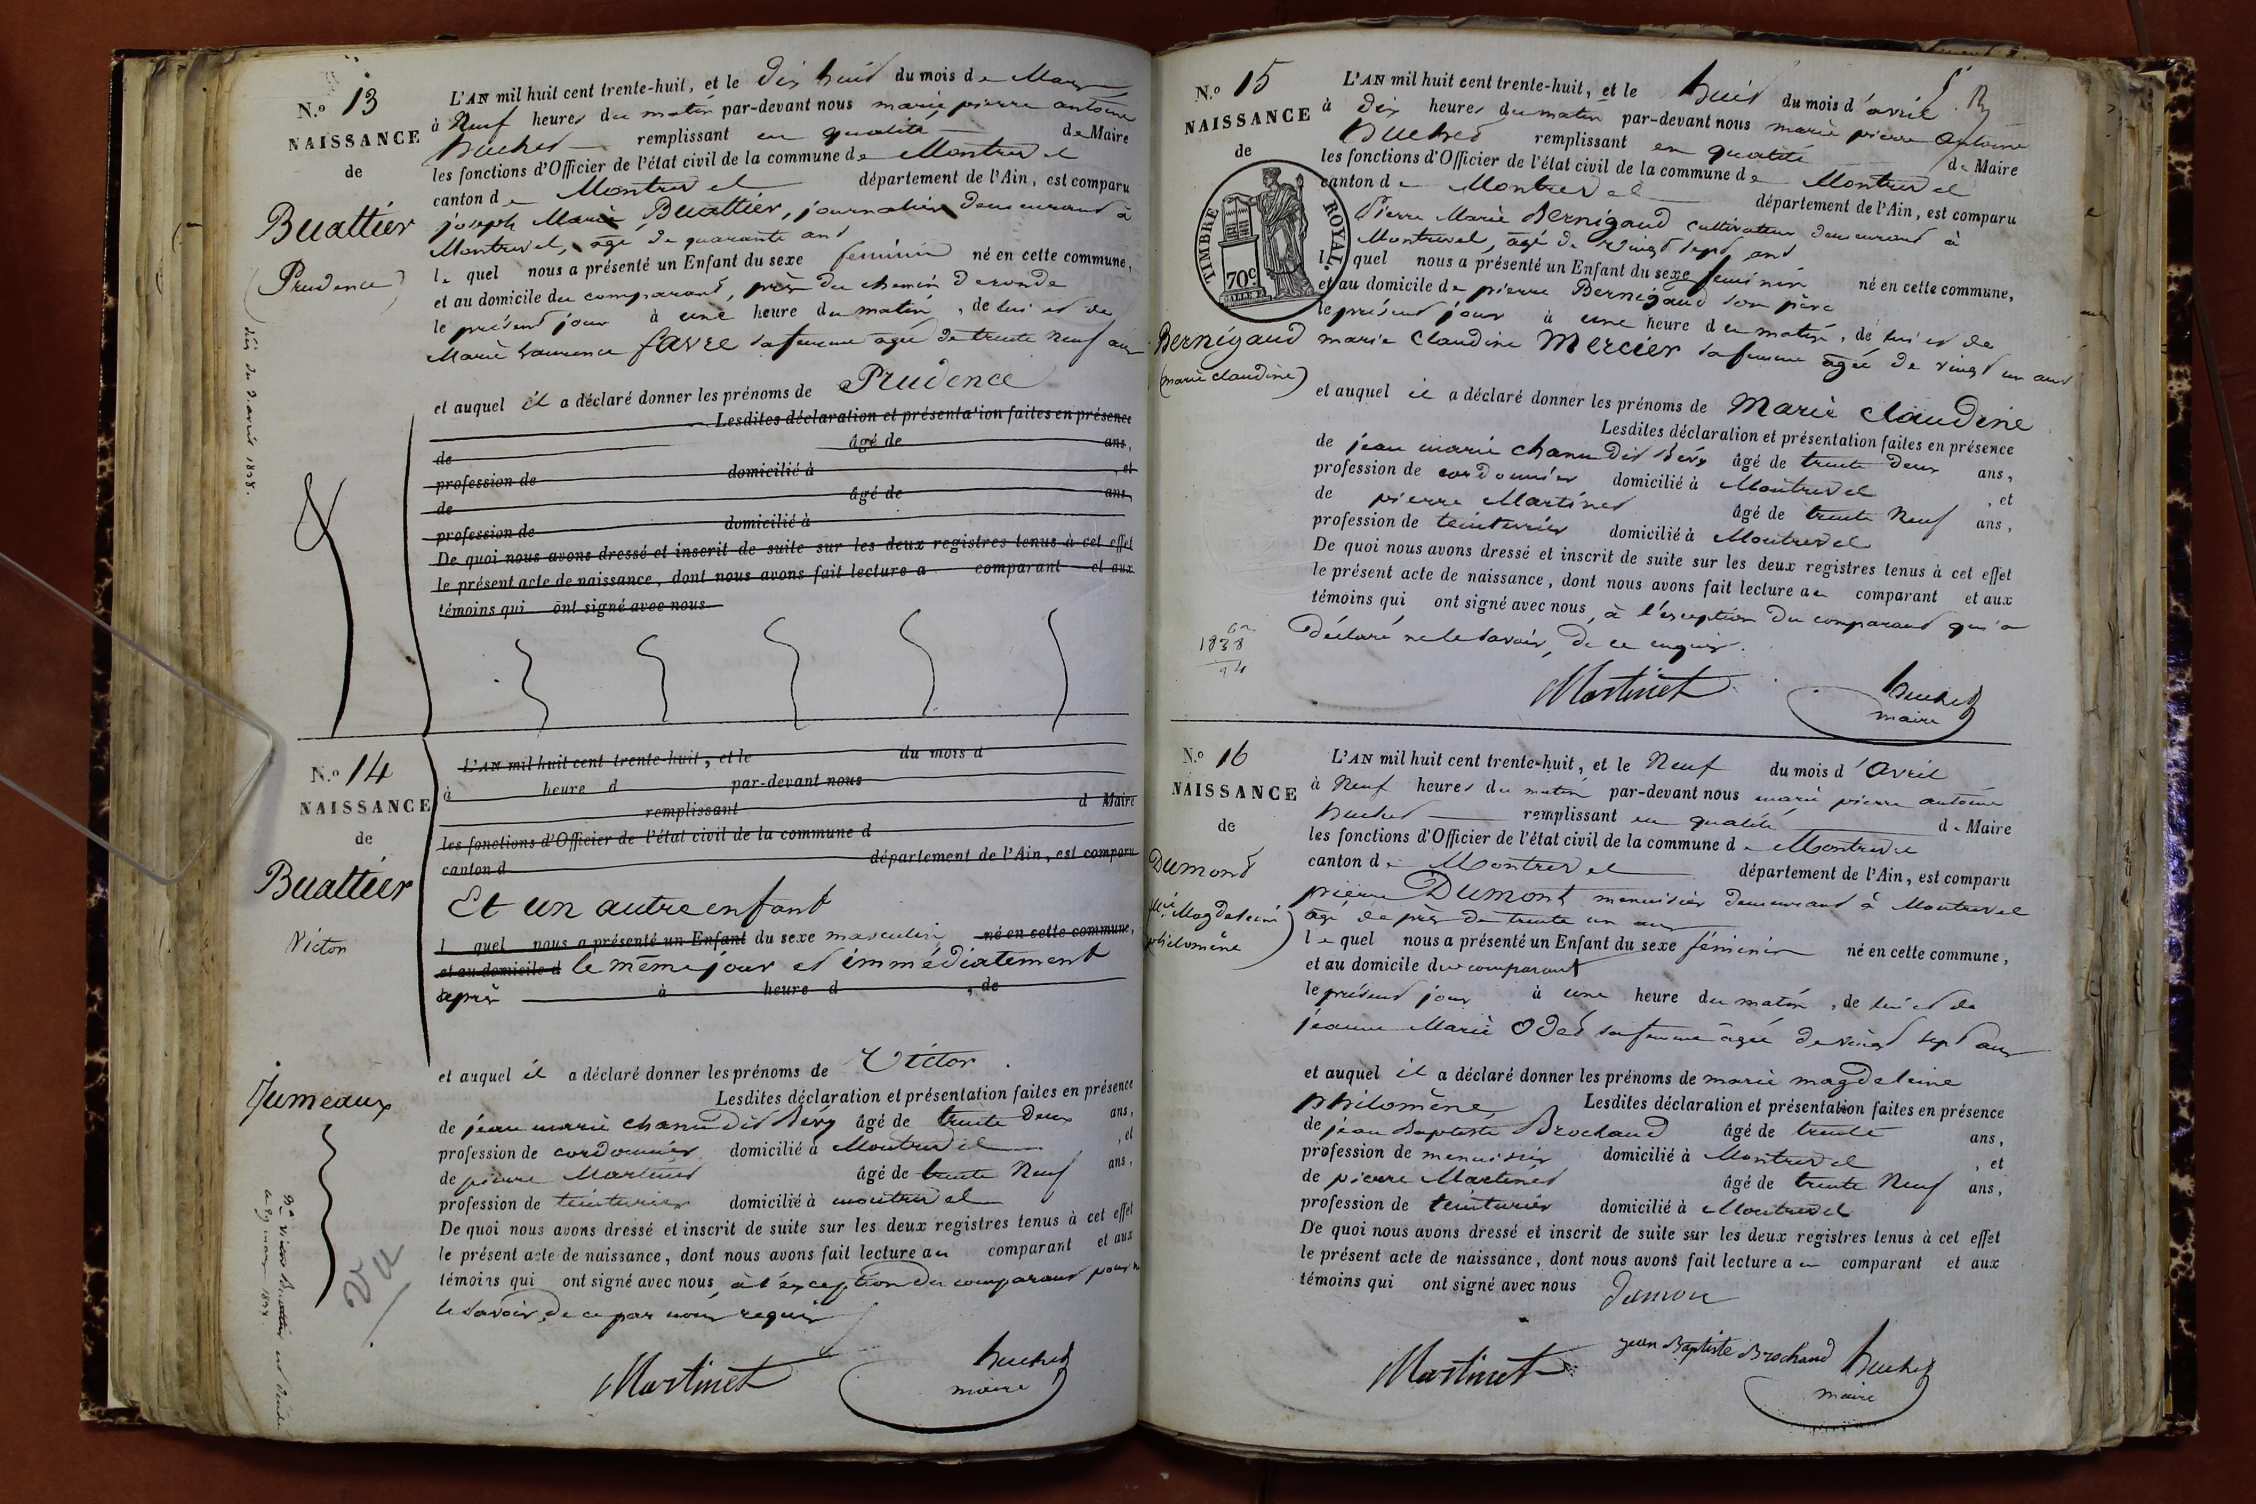 N.º 13
NAISSANCE
de
Buattier
(Prudence)
L'AN mil huit cent trente-huit, et le Dix huit du mois de Mars
à Neuf heures du matin par-devant nous marie pierre antoine
Buchet remplissant en qualité de Maire
les fonctions d'Officier de l'état civil de la commune de Montrevel
canton de Montrevel département de l'Ain, est comparu
joseph Marie Buattier, journalier demeurant à
Montrevel, âgé de quarante ans
le quel nous a présenté un Enfant du sexe féminin né en cette commune,
et au domicile du comparant, près du chemin de ronde
le présent jour à une heure du matin, de lui et de
Marie Laurence favre sa femme agée de trente neuf ans
et auquel il a déclaré donner les prénoms de Prudence
Lesdites déclaration et présentation faites en présence
de âgé de ans,
profession de domicilié à , et
de âgé de ans
profession de domicilié à
De quoi nous avons dressé et inscrit de suite sur les deux registres tenus à cet effet
le présent acte de naissance, dont nous avons fait lecture a comparant et aux
témoins qui ont signé avec nous
N.º 14
NAISSANCE
de
Buattier
Victor
Jumeaux
Vu
L'AN mil huit cent trente-huit, et le du mois d
à heure d par-devant nous
remplissant d Maire
les fonctions d'Officier de l'état civil de la commune d
canton d département de l'Ain, est comparu
Et un autre enfant
l quel nous a présenté un Enfant du sexe masculin né en cette commune,
et au domicile d le même jour et immédiatement
après à heure d , de
et auquel il a déclaré donner les prénoms de Victor.
Lesdites déclaration et présentation faites en présence
de jean marie chanu dit Béry âgé de trente Deux ans,
profession de cordonnier domicilié à Montrevel , et
de pierre Martinet âgé de trente Neuf ans,
profession de teinturier domicilié à montrevel
De quoi nous avons dressé et inscrit de suite sur les deux registres tenus à cet effet
le présent acte de naissance, dont nous avons fait lecture au comparant et aux
témoins qui ont signé avec nous, à l'exception du comparant pour ne
le savoir, de ce par nous requis
Martinet Buchet
maire
N.º 15
NAISSANCE
de
TIMBRE ROYAL.
70c.
Bernigaud
(marie claudine)
1838
L'AN mil huit cent trente-huit, et le huit du mois d'avril
à Dix heures du matin par-devant nous marie pierre antoine
Buchet remplissant en qualité de Maire
les fonctions d'Officier de l'état civil de la commune de Montrevel
canton de Montrevel département de l'Ain, est comparu
Pierre Marie Bernigaud cultivateur demeurant à
Montrevel, âgé de vingt sept ans
l quel nous a présenté un Enfant du sexe feminin né en cette commune,
et au domicile de pierre Bernigaud son père
le présent jour à une heure du matin, de lui et de
marie claudine Mercier sa femme âgée de vingt un ans
et auquel il a déclaré donner les prénoms de Marie claudine
Lesdites déclaration et présentation faites en présence
de jean marie chanu dit Béry âgé de trente deux ans,
profession de cordonnier domicilié à Montrevel , et
de pierre Martinet âgé de trente Neuf ans,
profession de teinturier domicilié à Montrevel
De quoi nous avons dressé et inscrit de suite sur les deux registres tenus à cet effet
le présent acte de naissance, dont nous avons fait lecture au comparant et aux
témoins qui ont signé avec nous, à l'exception du comparant qui a
Déclaré ne le savoir, de ce enquis.
Martinet Buchet
maire
N.º 16
NAISSANCE
de
Dumont
Mie Magdeleine
philomène
L'AN mil huit cent trente-huit, et le Neuf du mois d'avril
à Neuf heures du matin par-devant nous marie pierre antoine
Buchet remplissant en qualité de Maire
les fonctions d'Officier de l'état civil de la commune de Montrevel
canton de Montrevel département de l'Ain, est comparu
pierre Dumont menuisier demeurant à Montrevel
âgé de près de trente un ans
le quel nous a présenté un Enfant du sexe féminin né en cette commune,
et au domicile du comparant
le présent jour à une heure du matin, de lui et de
jeanne Marie Odet sa femme âgée de vingt sept ans
et auquel il a déclaré donner les prénoms de marie magdeleine
philomène, Lesdites déclaration et présentation faites en présence
de jean Baptiste Brochand âgé de trente ans,
profession de menuisier domicilié à Montrevel , et
de pierre Martinet âgé de trente Neuf ans,
profession de teinturier domicilié à Montrevel
De quoi nous avons dressé et inscrit de suite sur les deux registres tenus à cet effet
le présent acte de naissance, dont nous avons fait lecture au comparant et aux
témoins qui ont signé avec nous Dumon
Martinet jean Baptiste Brochand Buchet
maire